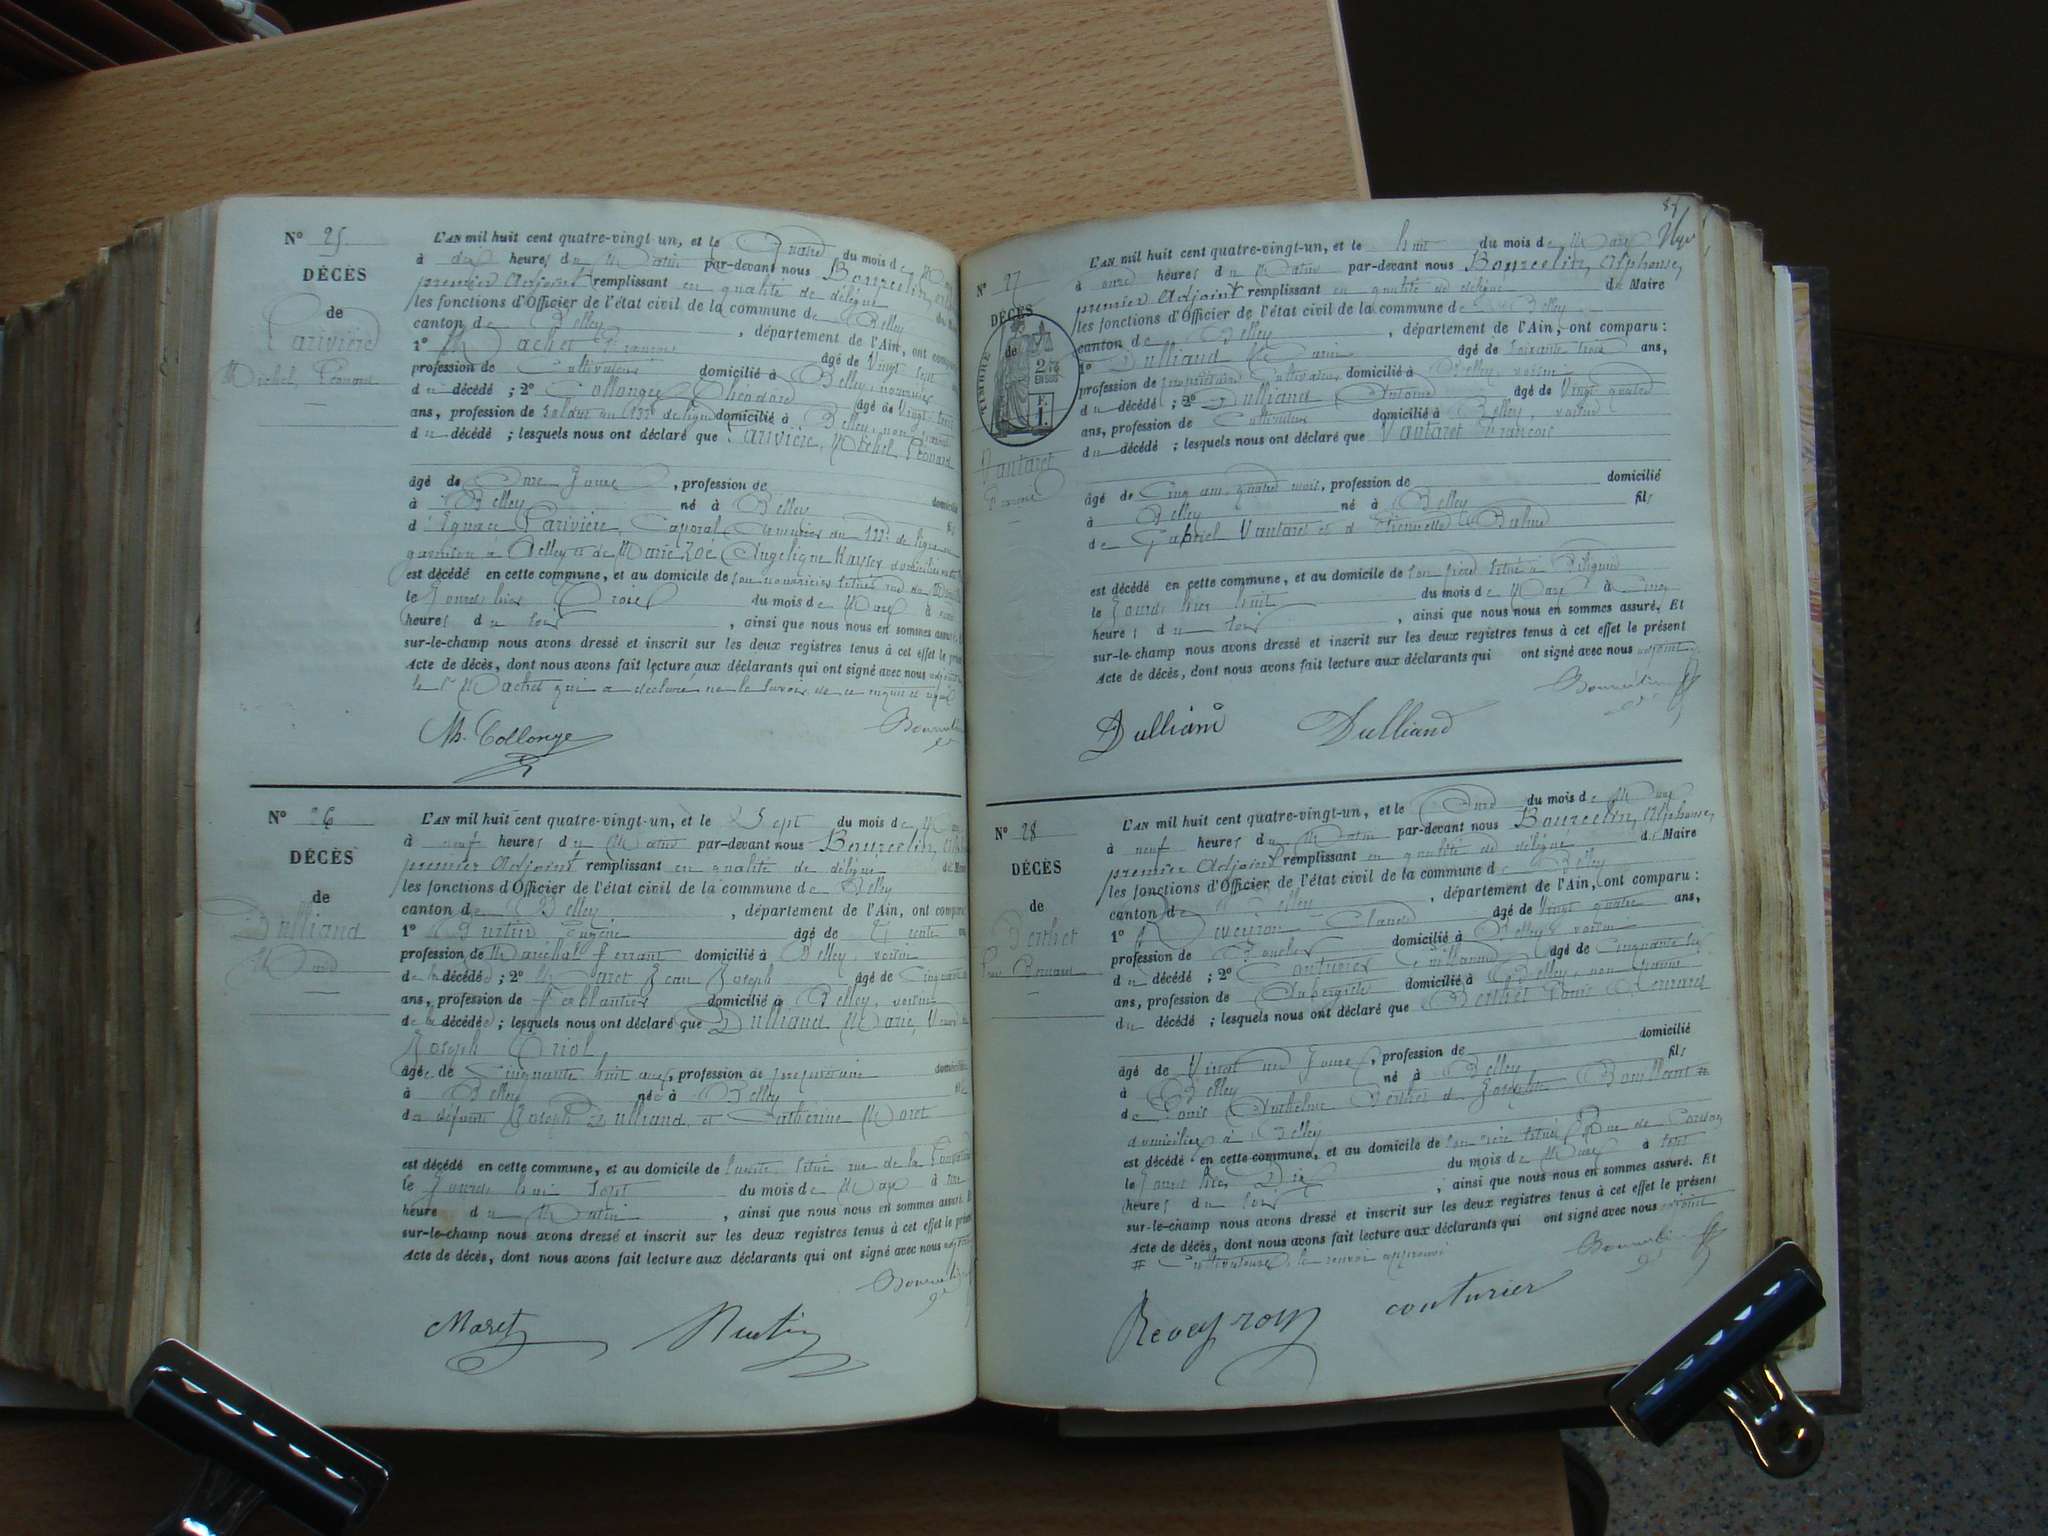 N° 25
DÉCÈS
de
Larivière
Michel Léonard
L'AN mil huit cent quatre-vingt un, et le quatre du mois de
à dix heures du Matin par-devant nous Bourcelin,
premier Adjoint remplissant en qualité de délégué
les fonctions d'Officier de l'état civil de la commune de Belley
canton de Belley, département de l'Ain, ont
1° Machet François âgé de Vingt sept
profession de Cultivateur domicilié à Belley, nourricier
du décédé ; 2° Collonge Théodore âgé de Vingt trois
ans, profession de Soldat au 133e de ligne domicilié à Belley, non parent
du décédé ; lesquels nous ont déclaré que Larivière, Michel, Léonard
âgé de Onze Jours, profession de
à Belley né à Belley
d'Ignace Larivière, Caporal Armurier au 133e de ligne en
garnison à Belley et de Marie Zoé Angélique Kayser domiciliés
est décédé en cette commune, et au domicile de son nourricier situé rue du
le Jourd'hier Trois du mois de Mars à
heures du soir, ainsi que nous nous en sommes assuré.
sur-le-champ nous avons dressé et inscrit sur les deux registres tenus à cet effet le
Acte de décès, dont nous avons fait lecture aux déclarants qui ont signé avec nous
le Sr Machet qui a déclaré ne le savoir de ce enquis et requis
Th. Collonge Bourcelin
N° 26
DÉCÈS
de
Dulliand
Marie
L'AN mil huit cent quatre-vingt-un, et le Sept du mois de Mars
à neuf heures du Matin par-devant nous Bourcelin,
premier Adjoint remplissant en qualité de délégué
les fonctions d'Officier de l'état civil de la commune de Belley
canton de Belley, département de l'Ain, ont
1° Eugène âgé de Trente
profession de Maréchal ferrant domicilié à Belley, voisin
de la décédée ; 2° Maret Jean Joseph âgé de
ans, profession de ferblantier domicilié à Belley, voisin
de la décédée ; lesquels nous ont déclaré que Dulliand Marie, Veuve de
Joseph Triol
âgée de Cinquante huit ans, profession de propriétaire
à Belley née à Belley
de défunts Joseph Dulliand, et Catherine Moret
est décédé en cette commune, et au domicile de situé rue de la
le Jourd'hui Sept du mois de Mars à une
heure du Matin, ainsi que nous nous en sommes assuré.
sur-le-champ nous avons dressé et inscrit sur les deux registres tenus à cet effet le
Acte de décès, dont nous avons fait lecture aux déclarants qui ont signé avec nous
Bourcelin
Maret
N° 27
DÉCÈS
de
TIMBRE
EN SUS
Vautaret
L'AN mil huit cent quatre-vingt-un, et le huit du mois de Mars
à onze heures du Matin par-devant nous Bourcelin, Alphonse,
premier Adjoint remplissant en qualité de délégué du Maire
les fonctions d'Officier de l'état civil de la commune de Belley
canton de Belley, département de l'Ain, ont comparu :
1° Dulliand âgé de soixante trois ans,
profession de propriétaire Cultivateur domicilié à Belley, voisin
du décédé ; 2° Dulliand Antoine âgé de Vingt quatre
ans, profession de Cultivateur domicilié à Belley, voisin
du décédé ; lesquels nous ont déclaré que Vautaret François
âgé de Cinq ans quatre mois, profession de domicilié
à Belley né à Belley fils
de Gabriel Vautaret et d'Etiennette Balme
est décédé en cette commune, et au domicile de son père situé à
le Jourd'hier huit du mois de Mars à Cinq
heures du soir, ainsi que nous nous en sommes assuré. Et
sur-le-champ nous avons dressé et inscrit sur les deux registres tenus à cet effet le présent
Acte de décès, dont nous avons fait lecture aux déclarants qui ont signé avec nous adjoint.
Bourcelin
Dulliand Dulliand
N° 28
DÉCÈS
de
Berthet
Louis Bernard
L'AN mil huit cent quatre-vingt-un, et le Onze du mois de Mars
à neuf heures du Matin par-devant nous Bourcelin, Alphonse,
premier Adjoint remplissant en qualité de délégué du Maire
les fonctions d'Officier de l'état civil de la commune de Belley
canton de Belley, département de l'Ain, ont comparu :
1° Reveyron Claude âgé de Vingt quatre ans,
profession de Boucher domicilié à Belley, voisin
du décédé ; 2° Couturier âgé de Cinquante six
ans, profession de Aubergiste domicilié à Belley, non parent
du décédé ; lesquels nous ont déclaré que Berthet Louis Bernard
âgé de Vingt un Jours, profession de domicilié
à Belley né à Belley fils
de Louis Anthelme Berthet et Josephte Bouillant #
domiciliés à Belley
est décédé en cette commune, et au domicile de son père situé Rue de
le Jourd'hier Dix du mois de Mars à sept
heures du soir, ainsi que nous nous en sommes assuré. Et
sur-le-champ nous avons dressé et inscrit sur les deux registres tenus à cet effet le présent
Acte de décès, dont nous avons fait lecture aux déclarants qui ont signé avec nous adjoint
# Cultivateurs, le renvoi approuvé
Bourcelin
Reveyron couturier